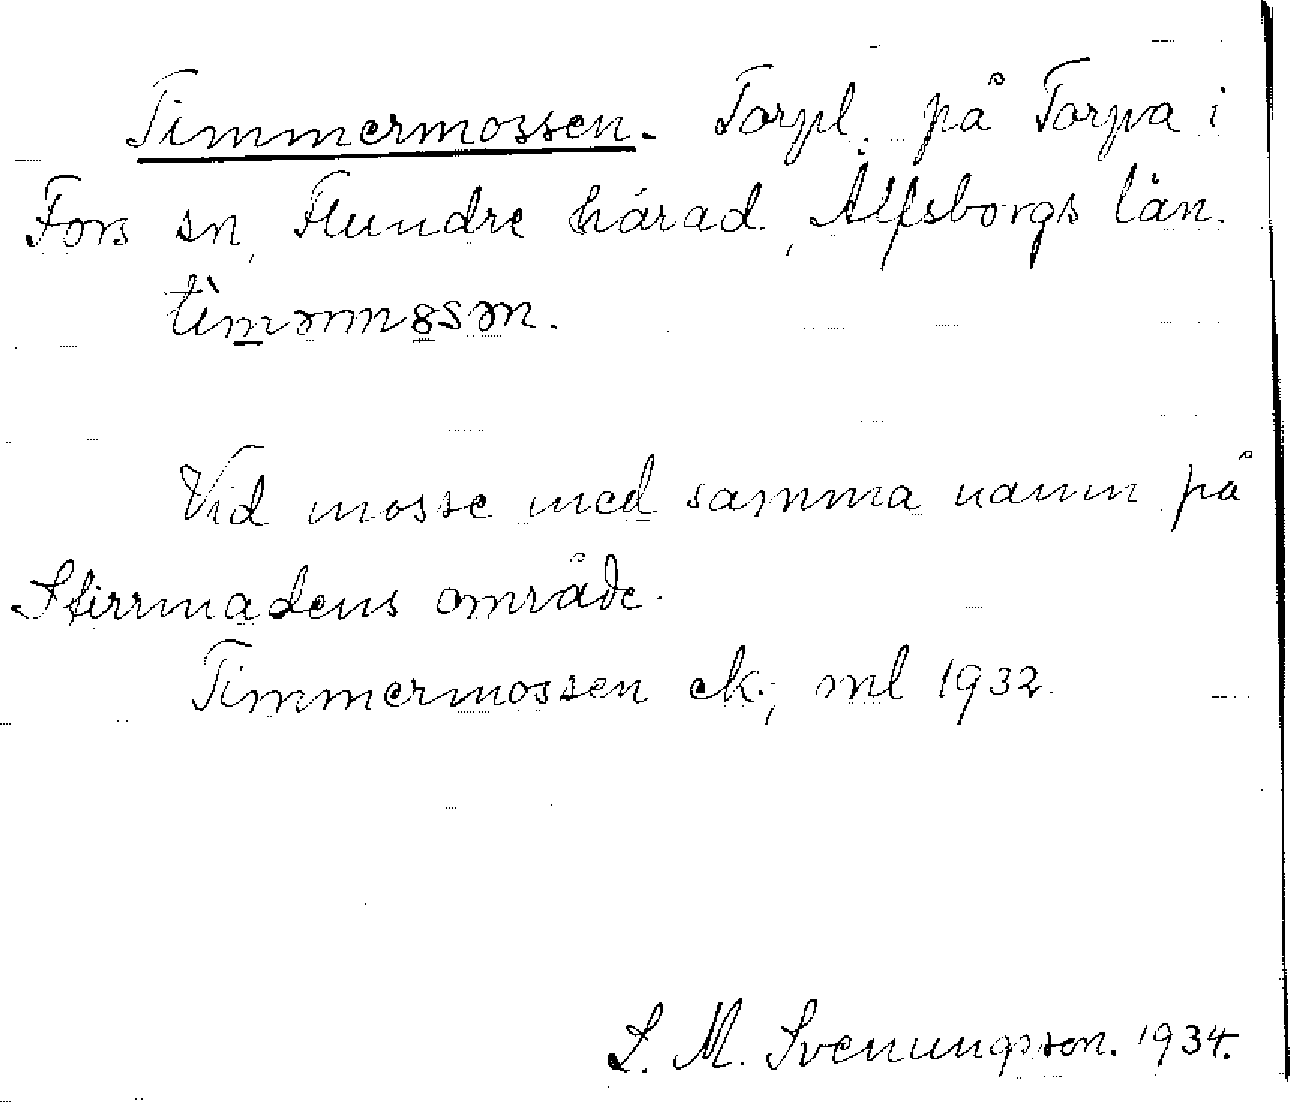 Timmermossen. Torpl. på Torpa i
Fors sn, Flundre härad, Älfsborgs län.
tìmərmȣsən.
Vid mosse med samma namn på
Stirrmadens område.
Timmermossen ek.; ml 1932.
S. M. Svenungsson. 1934.